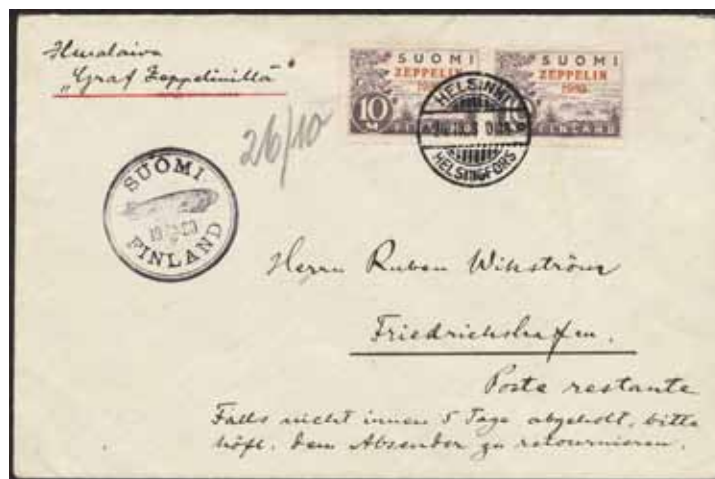 Ilmalaiva
„Graf Zeppelinillä"
SUOMI
ZEPPELIN
10
FINLAND
SUOMI
ZEPPELIN
1930
FINLAND
HELSINKI
HELSINGFORS
26/10
SUOMI
FINLAND
Herrn Ruben Wikström
Friedrichshafen.
Poste restante
Falls nicht innen 5 Tage abgeholt, bitte
höfl. dem Absender zu retournieren.